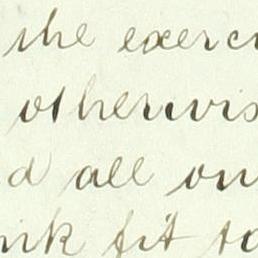 the exerci
otherwis
d all our
ink fit to